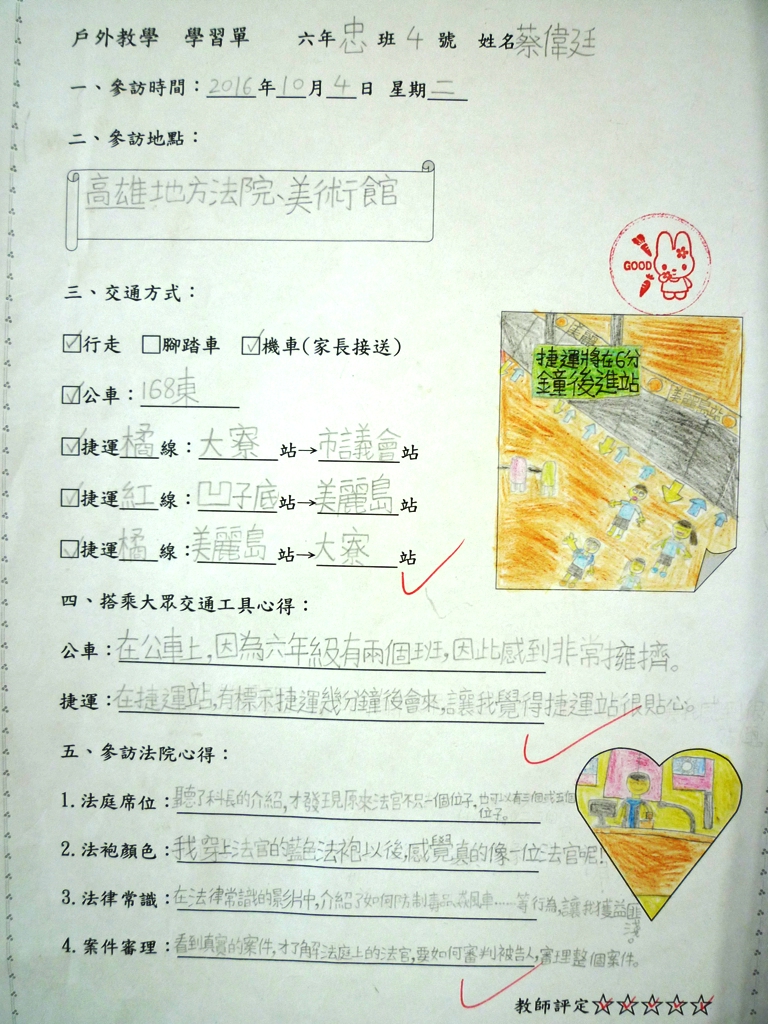 戶外教學 學習單 六年忠班4號 姓名蔡偉廷
一、參訪時間：2016年10月4日 星期二
二、參訪地點：
高雄地方法院、美術館
GOOD
三、交通方式：
☑行走 □腳踏車 ☑機車(家長接送)
☑公車：168東
☑捷運橘線：大寮站→市議會站
☑捷運紅線：凹子底站→美麗島站
☑捷運橘線：美麗島站→大寮站
捷運將在6分
鐘後進站
四、搭乘大眾交通工具心得：
公車：在公車上，因為六年級有兩個班，因此感到非常擁擠。
捷運：在捷運站，有標示捷運幾分鐘後會來，讓我覺得捷運站很貼心。
五、參訪法院心得：
1.法庭席位：聽了科長的介紹，才發現原來法官不只一個位子，也可以有三個或五個
位子。
2.法袍顏色：我穿上法官的藍色法袍以後，感覺真的像一位法官呢！
3.法律常識：在法律常識的影片中，介紹了如何防制毒品、飆風車……等行為，讓我獲益匪
淺。
4.案件審理：看到真實的案件，才了解法庭上的法官，要如何審判被告人，審理整個案件。
教師評定☆☆☆☆☆